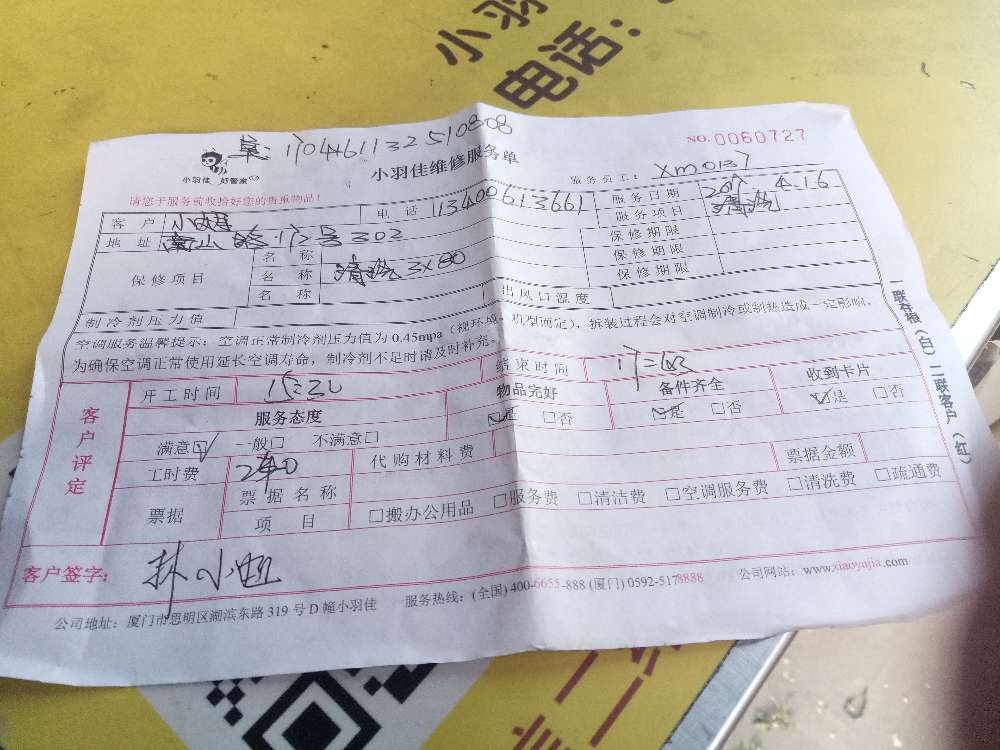 小羽佳
电话:
170461132510808
NO.0060727
小羽佳 好管家
小羽佳维修服务单
服务员工: xm0137
请您于服务前收拾好您的贵重物品!
客户 小
电话 113400613661
服务日期 4.16
地址 南山路 号302
服务项目 清洗
保修项目
名称
保修期限
名称 清洗 3×80
保修期限
名称
保修期限
制冷剂压力值
出风口温度
空调服务温馨提示: 空调正常制冷剂压力值为0.45mpa (视环境、机型而定), 拆装过程会对空调制冷或制热造成一定影响,
为确保空调正常使用延长空调寿命, 制冷剂不足时请及时补充。
客户评定
开工时间
结束时间
服务态度
物品完好
备件齐全
收到卡片
满意☑ 一般□ 不满意□
☑是 □否
☑是 □否
☑是 □否
工时费 240
代购材料费
票据金额
票据
票据名称
项目
□搬办公用品 □服务费 □清洁费 □空调服务费 □清洗费 □疏通费
客户签字: 林小
公司地址: 厦门市思明区湖滨东路319号D幢小羽佳 服务热线: (全国) 400-6655-888 (厦门) 0592-5178888 公司网站: www.xiaoyujia.com
一联存根(白) 二联客户(红)